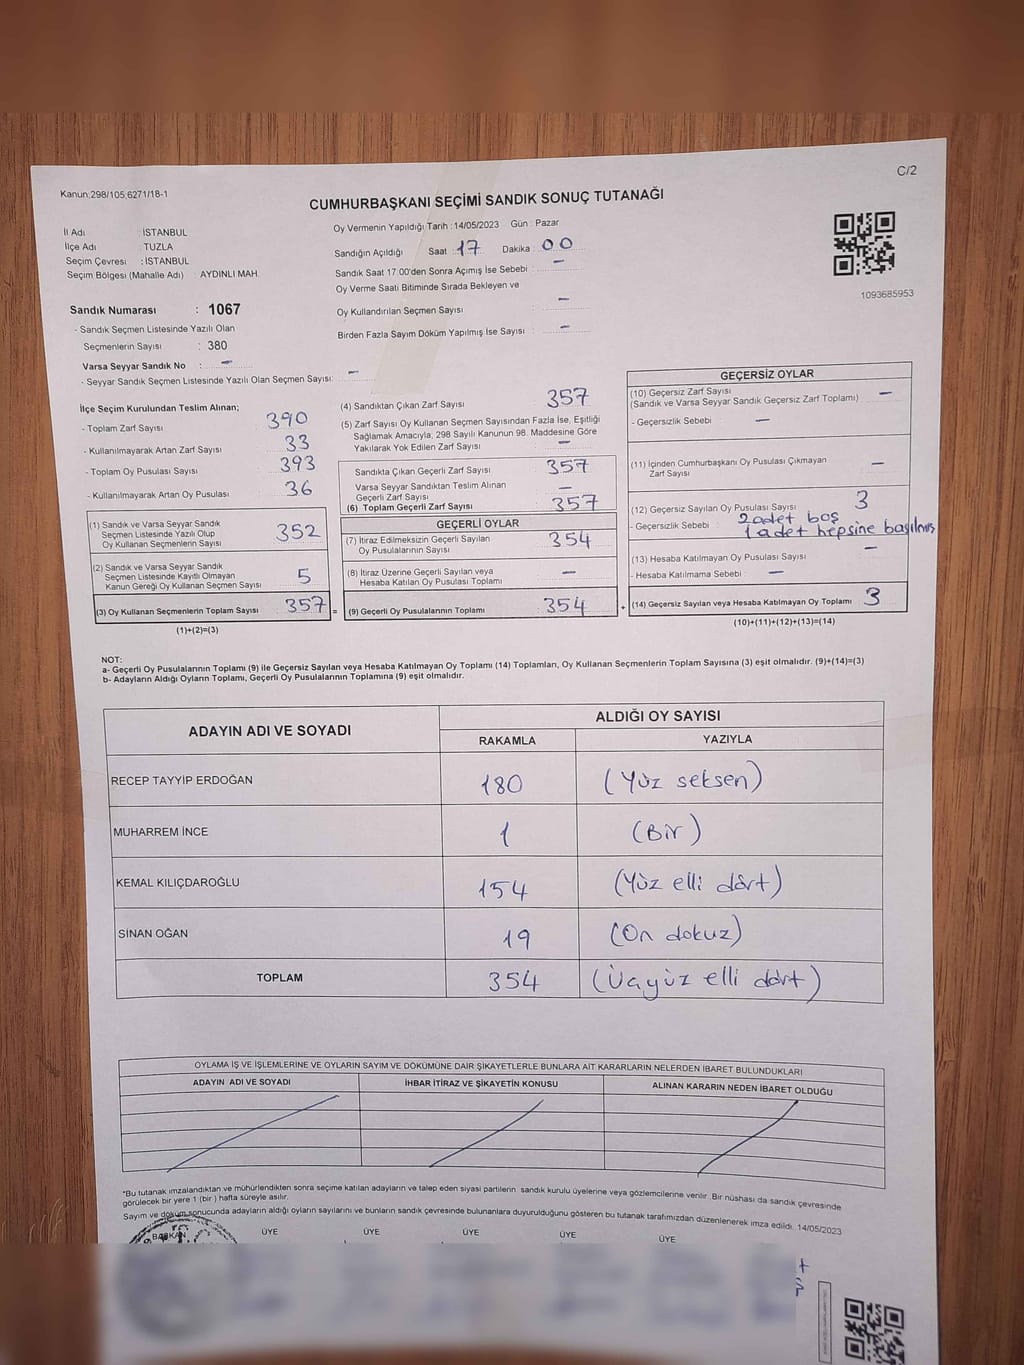 C/2
Kanun:298/105,6271/18-1
CUMHURBAŞKANI SEÇİMİ SANDIK SONUÇ TUTANAĞI
İl Adı : İSTANBUL
İlçe Adı : TUZLA
Seçim Çevresi : İSTANBUL
Seçim Bölgesi (Mahalle Adı) : AYDINLI MAH.
Oy Vermenin Yapıldığı Tarih :14/05/2023 Gün : Pazar
Sandığın Açıldığı Saat : 17 Dakika : 00
Sandık Saat 17.00'den Sonra Açımış İse Sebebi : -
Oy Verme Saati Bitiminde Sırada Bekleyen ve
Oy Kullandırılan Seçmen Sayısı : -
Birden Fazla Sayım Döküm Yapılmış İse Sayısı : -
1093685953
Sandık Numarası : 1067
- Sandık Seçmen Listesinde Yazılı Olan
Seçmenlerin Sayısı : 380
Varsa Seyyar Sandık No : -
- Seyyar Sandık Seçmen Listesinde Yazılı Olan Seçmen Sayısı: -
İlçe Seçim Kurulundan Teslim Alınan;
- Toplam Zarf Sayısı 390
- Kullanılmayarak Artan Zarf Sayısı 33
- Toplam Oy Pusulası Sayısı 393
- Kullanılmayarak Artan Oy Pusulası 36
(1) Sandık ve Varsa Seyyar Sandık
Seçmen Listesinde Yazılı Olup
Oy Kullanan Seçmenlerin Sayısı 352
(2) Sandık ve Varsa Seyyar Sandık
Seçmen Listesinde Kayıtlı Olmayan
Kanun Gereği Oy Kullanan Seçmen Sayısı 5
(3) Oy Kullanan Seçmenlerin Toplam Sayısı 357 =
(1)+(2)=(3)
(4) Sandıktan Çıkan Zarf Sayısı 357
(5) Zarf Sayısı Oy Kullanan Seçmen Sayısından Fazla İse, Eşitliği
Sağlamak Amacıyla, 298 Sayılı Kanunun 98. Maddesine Göre
Yakılarak Yok Edilen Zarf Sayısı -
Sandıkta Çıkan Geçerli Zarf Sayısı 357
Varsa Seyyar Sandıktan Teslim Alınan
Geçerli Zarf Sayısı -
(6) Toplam Geçerli Zarf Sayısı 357
GEÇERLİ OYLAR
(7) İtiraz Edilmeksizin Geçerli Sayılan
Oy Pusulalarının Sayısı 354
(8) İtiraz Üzerine Geçerli Sayılan veya
Hesaba Katılan Oy Pusulası Toplamı -
(9) Geçerli Oy Pusulalarının Toplamı 354 +
GEÇERSİZ OYLAR
(10) Geçersiz Zarf Sayısı
(Sandık ve Varsa Seyyar Sandık Geçersiz Zarf Toplamı) -
- Geçersizlik Sebebi : -
(11) İçinden Cumhurbaşkanı Oy Pusulası Çıkmayan
Zarf Sayısı -
(12) Geçersiz Sayılan Oy Pusulası Sayısı 3
- Geçersizlik Sebebi : 2 adet boş
1 adet hepsine basılmış
(13) Hesaba Katılmayan Oy Pusulası Sayısı -
- Hesaba Katılmama Sebebi : -
(14) Geçersiz Sayılan veya Hesaba Katılmayan Oy Toplamı 3
(10)+(11)+(12)+(13)=(14)
NOT:
a- Geçerli Oy Pusulalarının Toplamı (9) ile Geçersiz Sayılan veya Hesaba Katılmayan Oy Toplamı (14) Toplamları, Oy Kullanan Seçmenlerin Toplam Sayısına (3) eşit olmalıdır. (9)+(14)=(3)
b- Adayların Aldığı Oyların Toplamı, Geçerli Oy Pusulalarının Toplamına (9) eşit olmalıdır.
ADAYIN ADI VE SOYADI
ALDIĞI OY SAYISI
RAKAMLA YAZIYLA
RECEP TAYYİP ERDOĞAN 180 (Yüz seksen)
MUHARREM İNCE 1 (Bir)
KEMAL KILIÇDAROĞLU 154 (Yüz elli dört)
SİNAN OĞAN 19 (On dokuz)
TOPLAM 354 (Üçyüz elli dört)
OYLAMA İŞ VE İŞLEMLERİNE VE OYLARIN SAYIM VE DÖKÜMÜNE DAİR ŞİKAYETLERLE BUNLARA AİT KARARLARIN NELERDEN İBARET BULUNDUKLARI
ADAYIN ADI VE SOYADI İHBAR İTİRAZ VE ŞİKAYETİN KONUSU ALINAN KARARIN NEDEN İBARET OLDUĞU
*Bu tutanak imzalandıktan ve mühürlendikten sonra seçime katılan adayların ve talep eden siyasi partilerin sandık kurulu üyelerine veya gözlemcilerine verilir. Bir nüshası da sandık çevresinde
görülecek bir yere 1 (bir ) hafta süreyle asılır.
Sayım ve döküm sonucunda adayların aldığı oyların sayılarını ve bunların sandık çevresinde bulunanlara duyurulduğunu gösteren bu tutanak tarafımızdan düzenlenerek imza edildi. 14/05/2023
BAŞKAN ÜYE ÜYE ÜYE ÜYE ÜYE